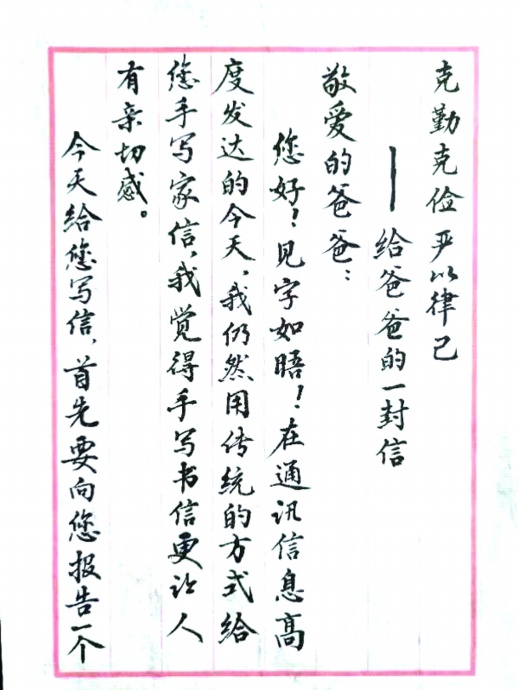 克勤克俭 严以律己
——给爸爸的一封信
敬爱的爸爸：
您好！见字如晤！在通讯信息高
度发达的今天，我仍然用传统的方式给
您手写家信，我觉得手写书信更让人
有亲切感。
今天给您写信，首先要向您报告一个